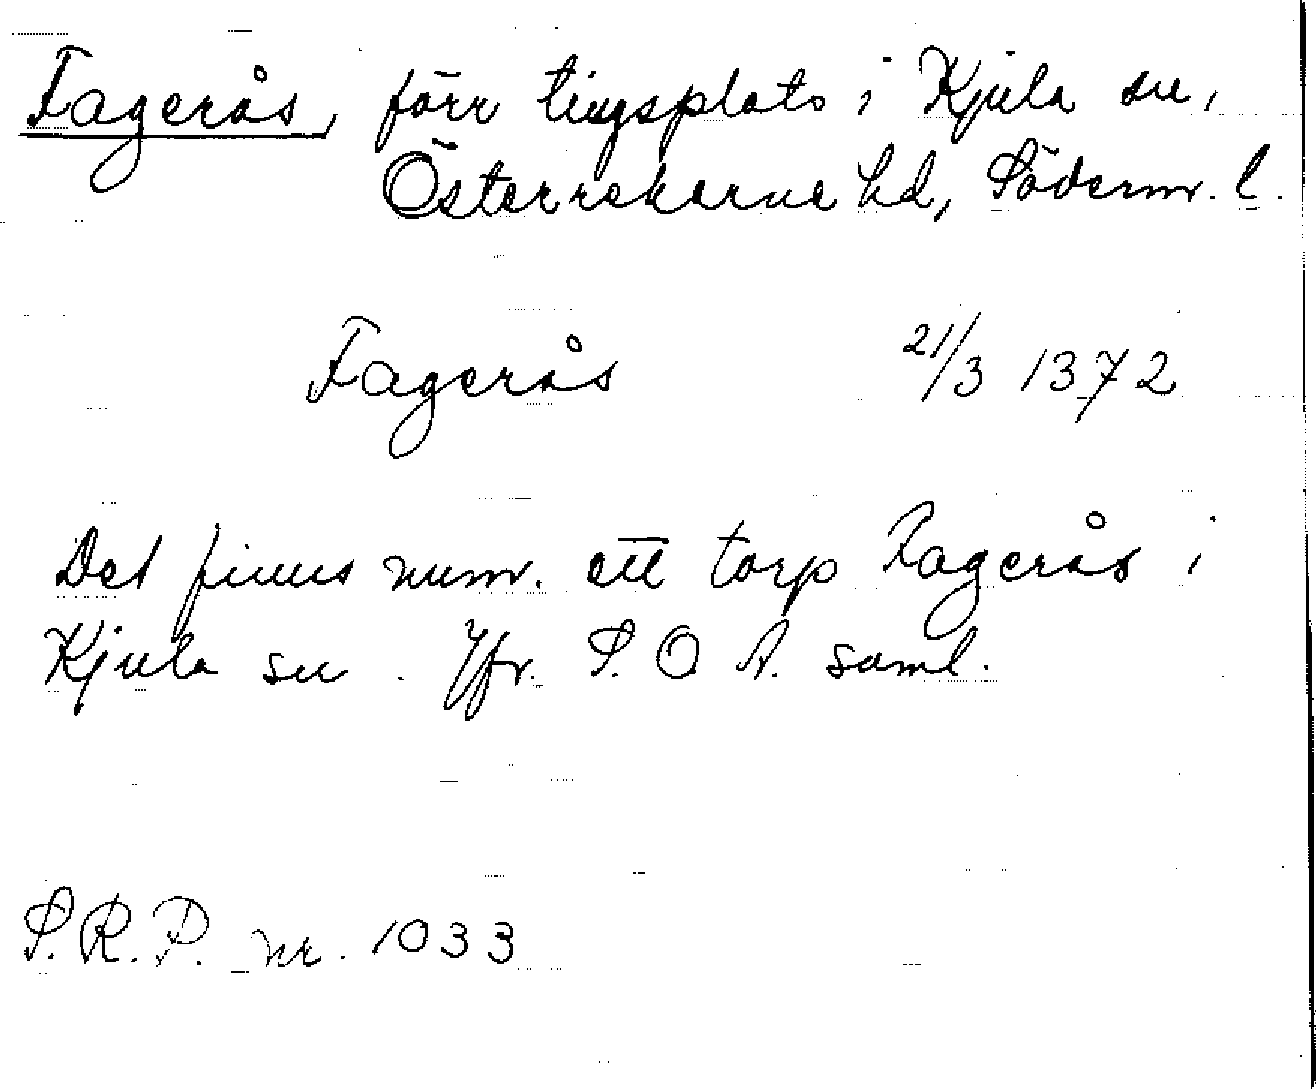 Fagerås, förr tingsplats i Kjula sn,
Österrekarne hd, Söderm. l.
Fagerås 21/3 1372
Det finns num. ett torp Fagerås i
Kjula sn. Jfr. S. O A. saml.
S.R.P. nr. 1033